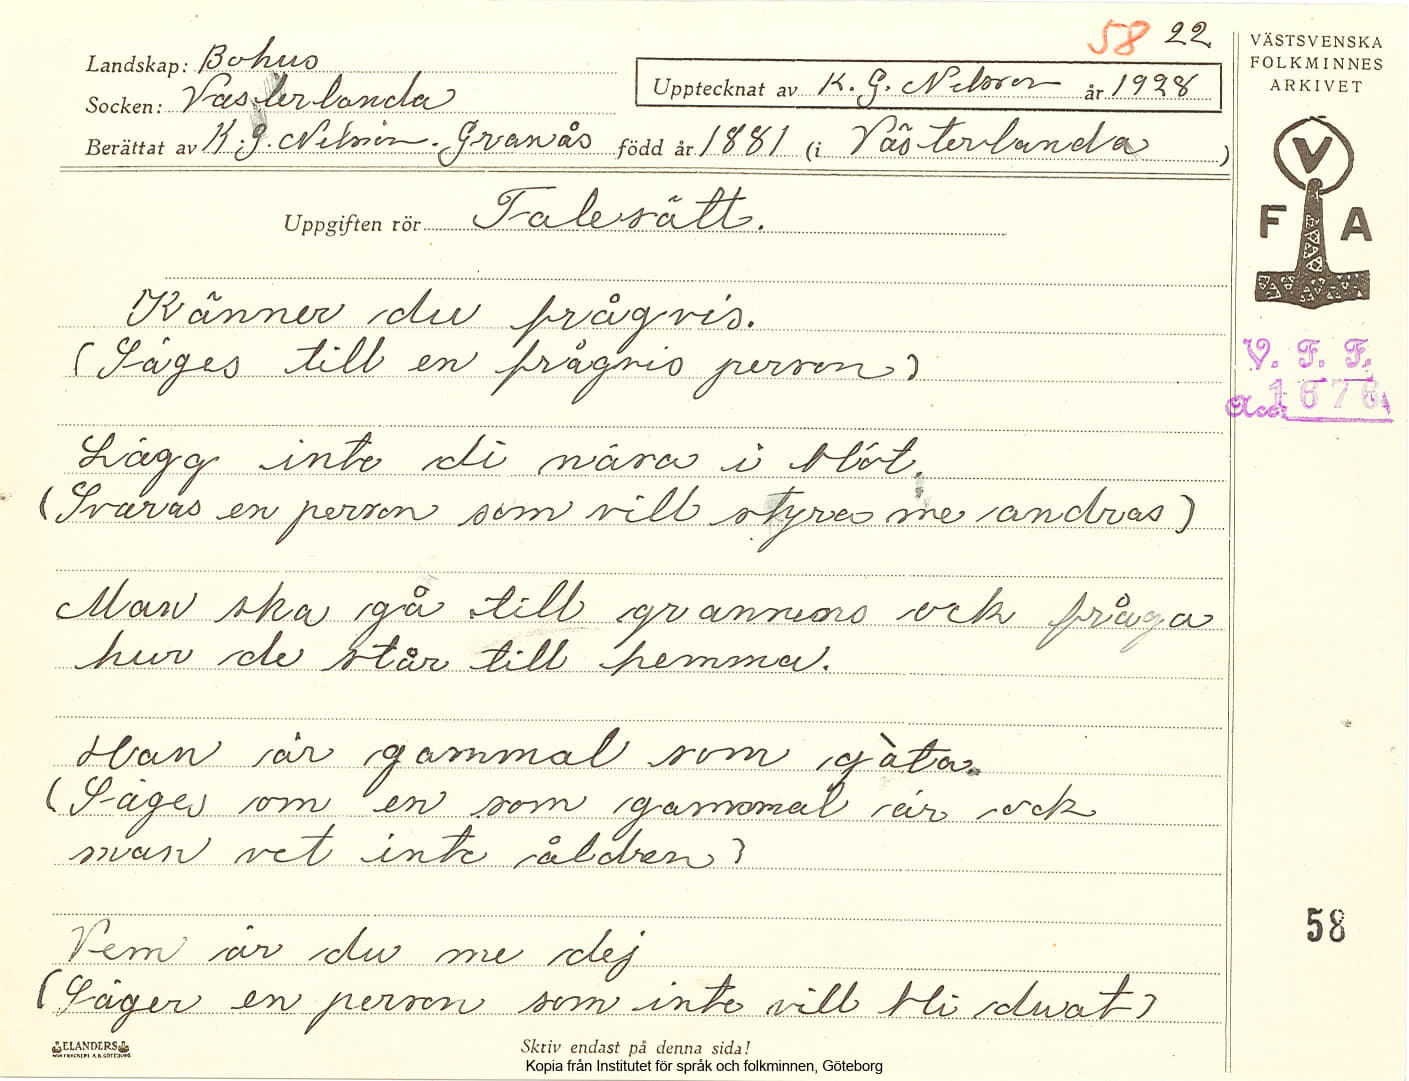 58 22
Landskap: Bohus
Socken: Västerlanda
Upptecknat av K. G. Nilsson år 1928
Berättat av K. G. Nilsson. Granås född år 1881 (i Västerlanda)
Uppgiften rör Talesätt.
Känner du frågvis.
(Säges till en frågvis person)
Lägg inte di nära i blöt.
(Svaras en person som vill styra me andras)
Man ska gå till grannens ock fråga
hur de står till hemma.
Han är gammal som gàta.
(Säges om en som gammal är ock
man vet inte åldren)
Vem är du me dej
(Säger en person som inte vill bli duat)
VÄSTSVENSKA
FOLKMINNES
ARKIVET
V
F A
V. F. F.
Acc. 1676
58
ELANDERS
Skriv endast på denna sida!
Kopia från Institutet för språk och folkminnen, Göteborg